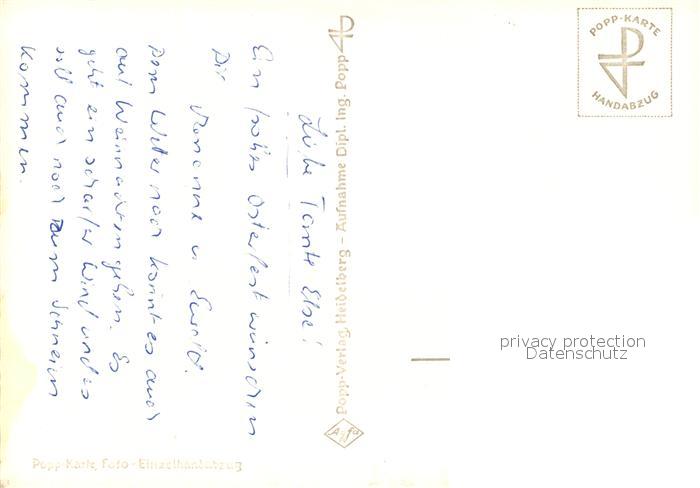 Liebe Tante Else!
Ein frohes Osterfest wünschen
Dir
u. Ewald.
Dem Wetter nach könnt es auch
auf Weihnachten gehen. Es
geht ein scharfer Wind und es
soll auch noch zum schneien
kommen.
Popp-Verlag, Heidelberg - Aufnahme Dipl. Ing. Popp
Agfa
POPP-KARTE
HANDABZUG
privacy protection
Datenschutz
Popp-Karte, Foto-Einzelhandabzug